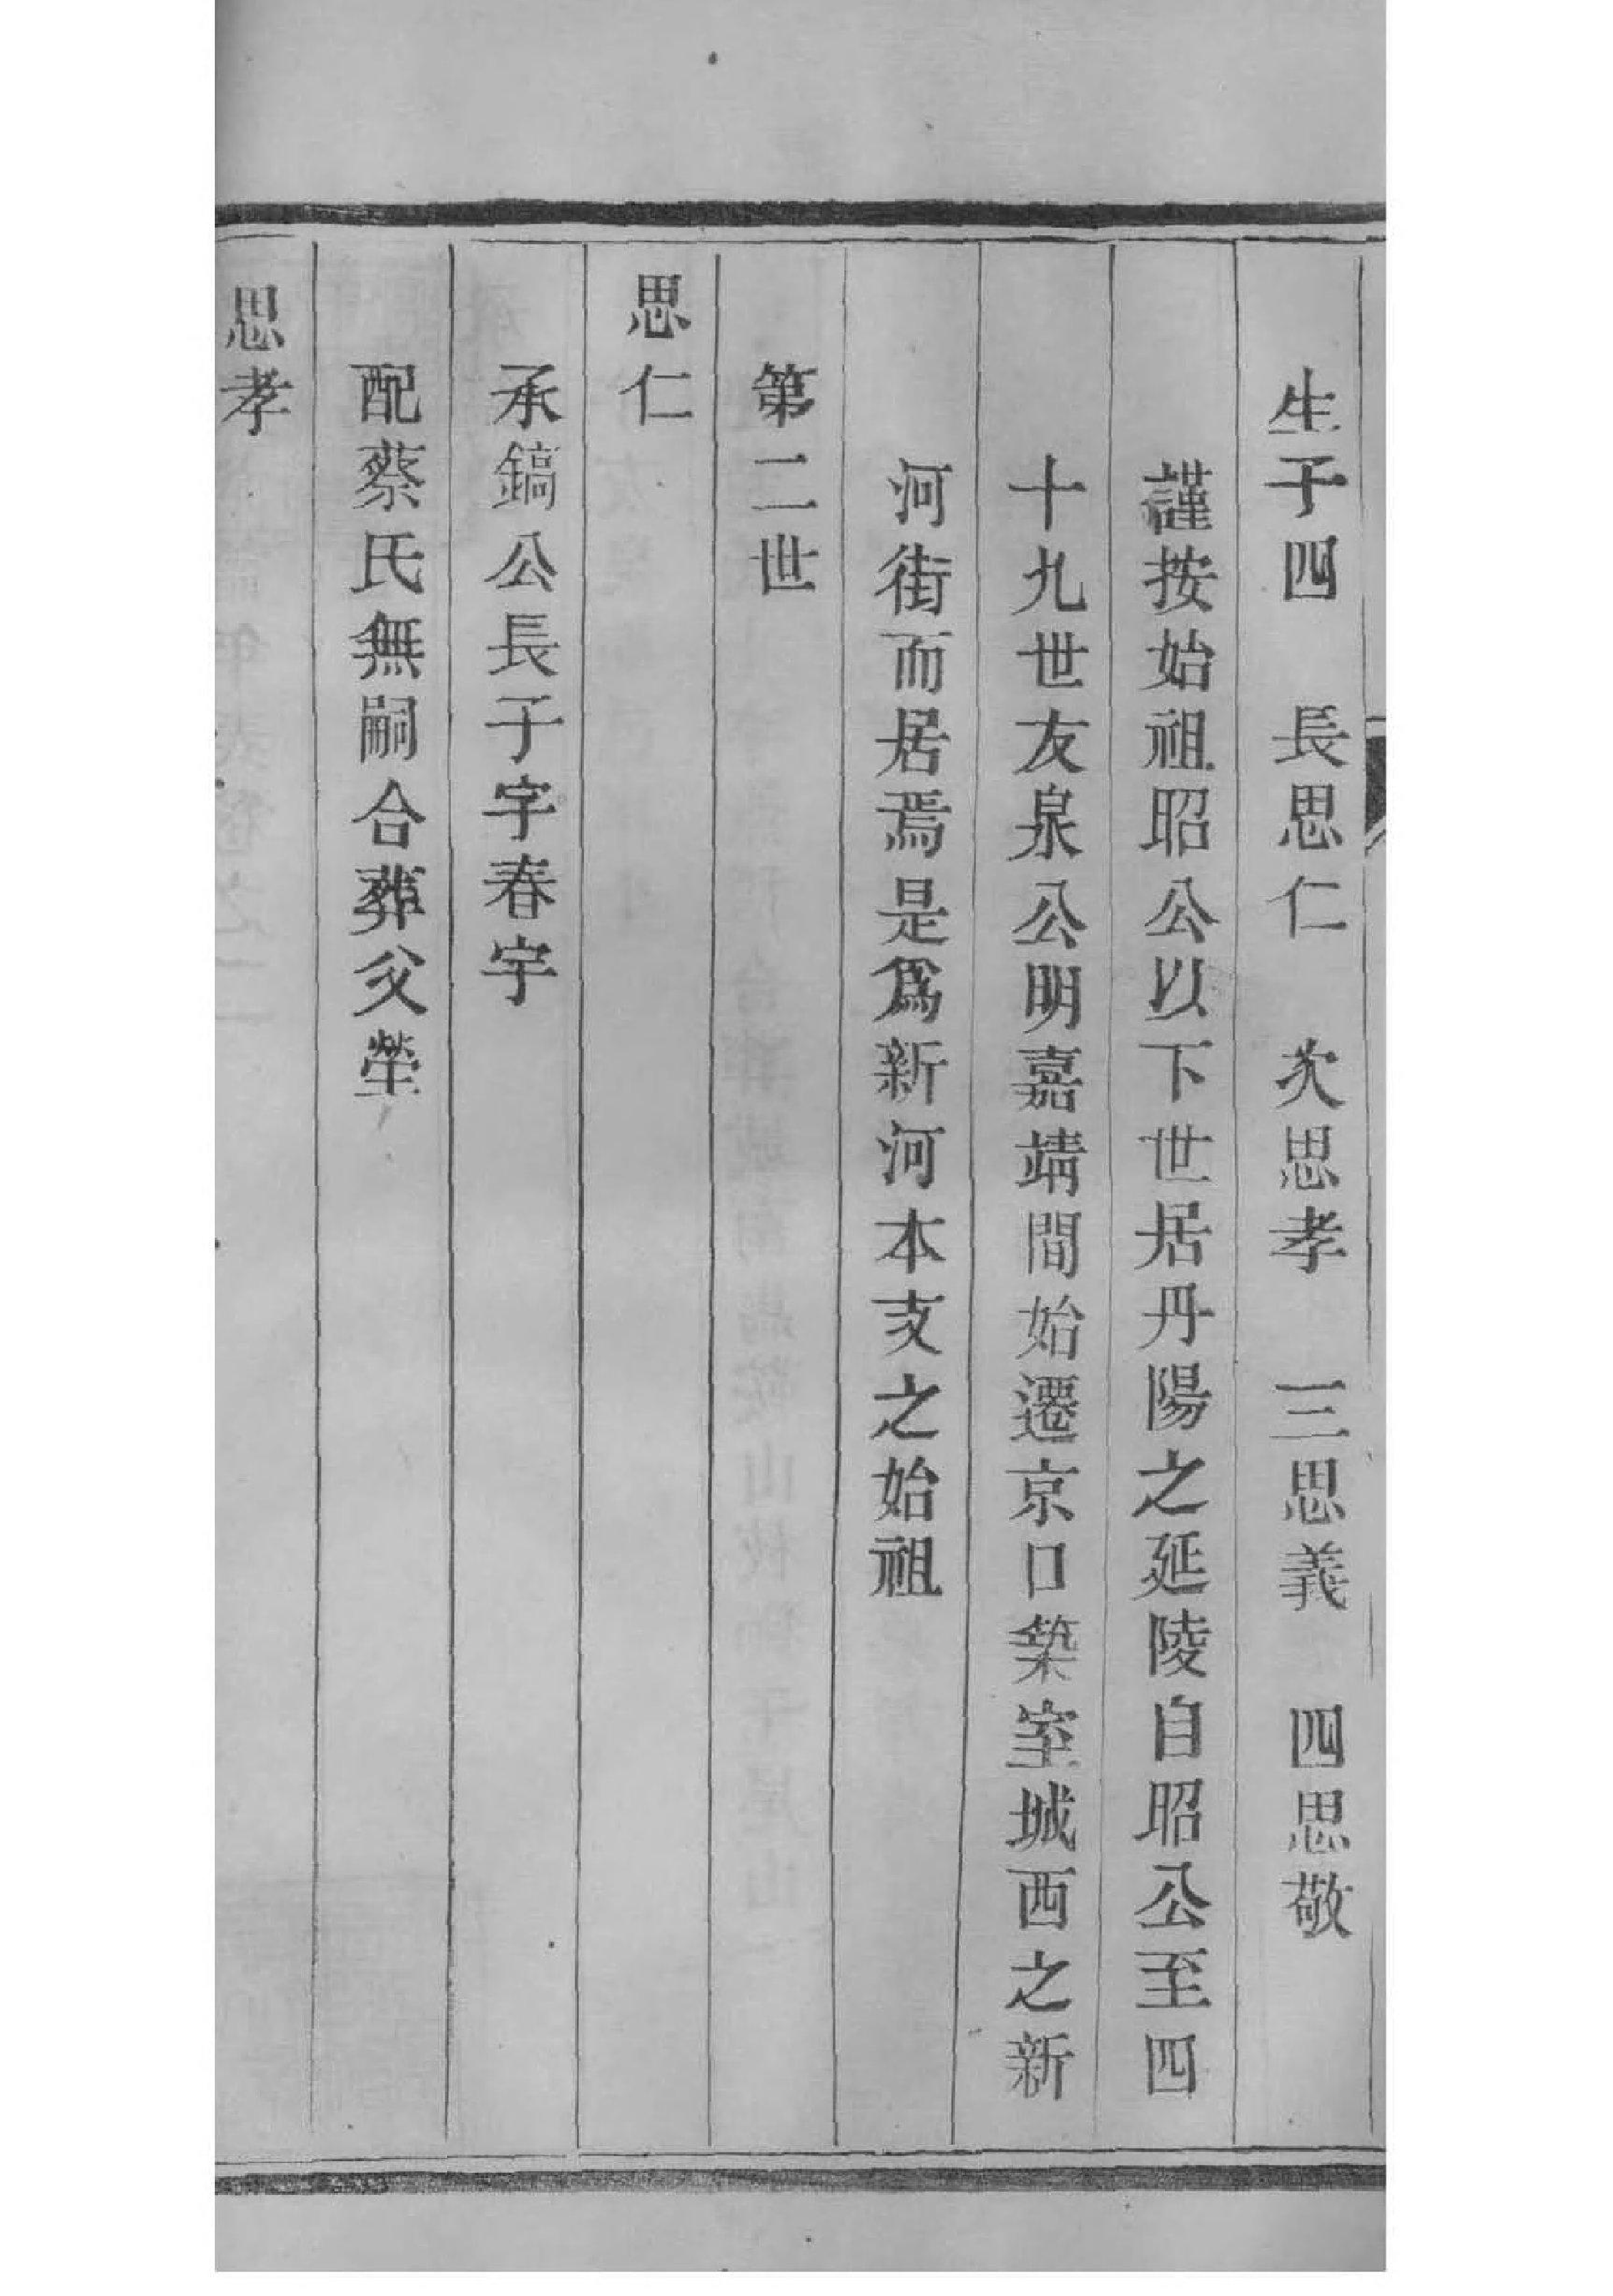 生子四　長思仁　次思孝　三思義　四思敬
謹按始祖昭公以下世居丹陽之延陵自昭公至四
十九世友泉公明嘉靖間始遷京口築室城西之新
河街而居焉是爲新河本支之始祖
第二世
思仁
承鎬公長子字春宇
配蔡氏無嗣合葬父塋
思孝